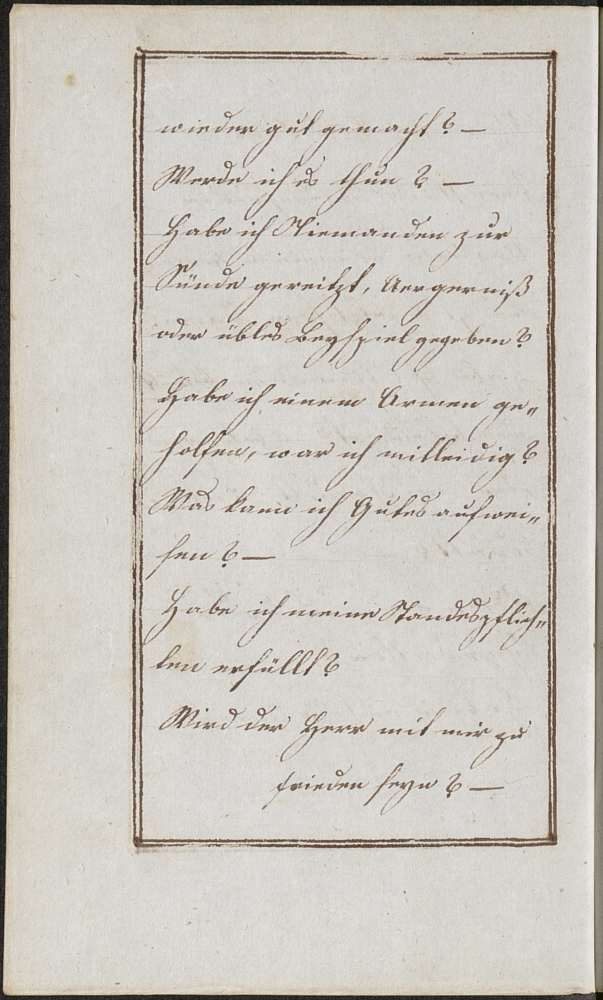 wieder gut gemacht? —
Werde ich es thun? —
Habe ich Niemanden zur
Sünde gereitzt, Aergerniß
oder übles Beyspiel gegeben?
Habe ich einem Armen ge„
holfen, war ich mitleidig?
Was kann ich Gutes aufwei„
sen? —
Habe ich meine Standespflich„
ten erfüllt?
Wird der Herr mit mir zu
frieden seyn? —